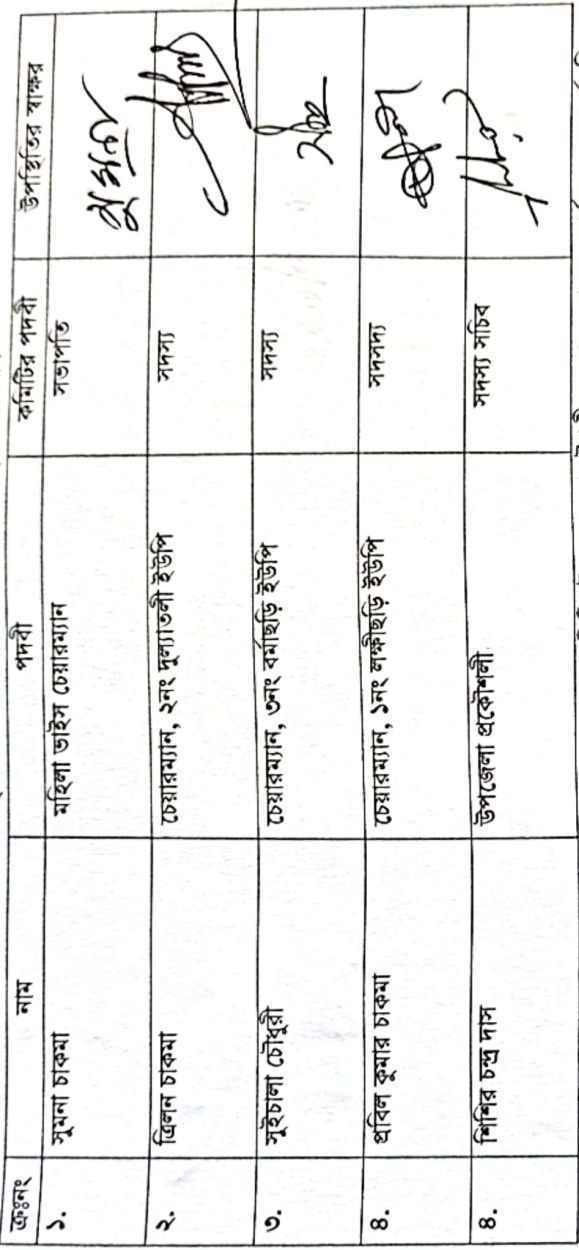 ক্রঃনং নাম পদবী কমিটির পদবী উপস্থিতির স্বাক্ষর
১. সুমনা চাকমা মহিলা ভাইস চেয়ারম্যান সভাপতি
২. ত্রিলন চাকমা চেয়ারম্যান, ২নং দুল্যাতলী ইউপি সদস্য
৩. সুইচালা চৌধুরী চেয়ারম্যান, ৩নং বর্মাছড়ি ইউপি সদস্য
৪. প্রবিল কুমার চাকমা চেয়ারম্যান, ১নং লক্ষীছড়ি ইউপি সদসদ্য
৪. শিশির চন্দ্র দাস উপজেলা প্রকৌশলী সদস্য সচিব